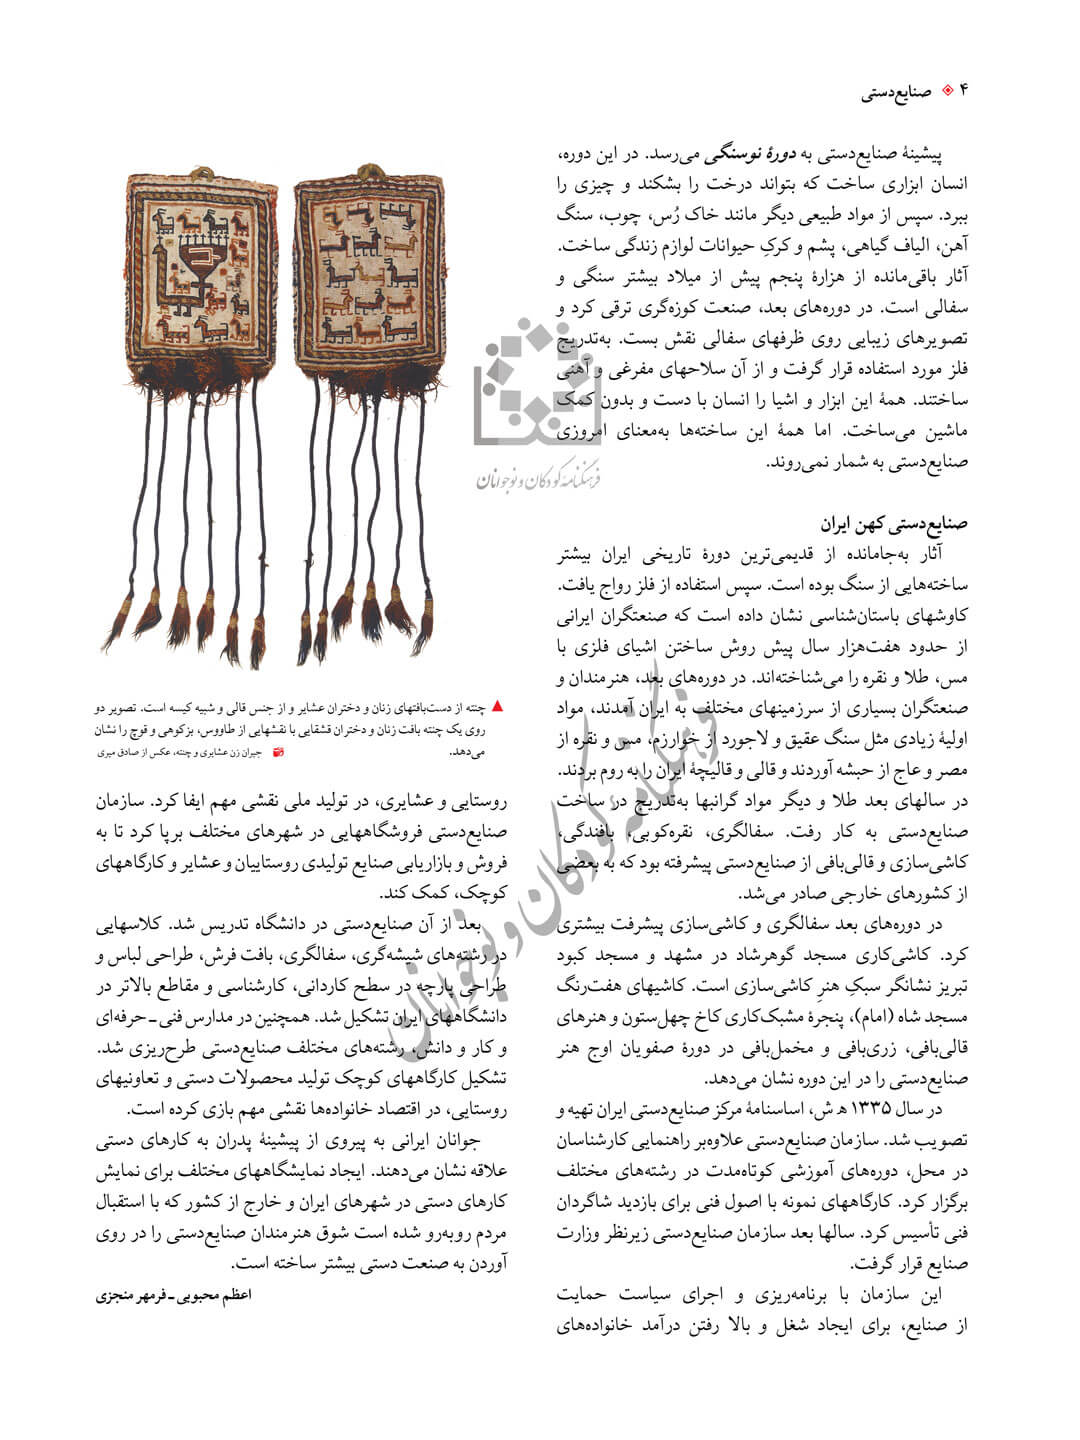 ۴ صنایع‌دستی
پیشینهٔ صنایع‌دستی به دورهٔ نوسنگی می‌رسد. در این دوره،
انسان ابزاری ساخت که بتواند درخت را بشکند و چیزی را
ببرد. سپس از مواد طبیعی دیگر مانند خاک رُس، چوب، سنگ
آهن، الیاف گیاهی، پشم و کرکِ حیوانات لوازم زندگی ساخت.
آثار باقی‌مانده از هزارهٔ پنجم پیش از میلاد بیشتر سنگی و
سفالی است. در دوره‌های بعد، صنعت کوزه‌گری ترقی کرد و
تصویرهای زیبایی روی ظرفهای سفالی نقش بست. به‌تدریج
فلز مورد استفاده قرار گرفت و از آن سلاحهای مفرغی و آهنی
ساختند. همهٔ این ابزار و اشیا را انسان با دست و بدون کمک
ماشین می‌ساخت. اما همهٔ این ساخته‌ها به‌معنای امروزی
صنایع‌دستی به شمار نمی‌روند.
صنایع‌دستی کهن ایران
آثار به‌جامانده از قدیمی‌ترین دورهٔ تاریخی ایران بیشتر
ساخته‌هایی از سنگ بوده است. سپس استفاده از فلز رواج یافت.
کاوشهای باستان‌شناسی نشان داده است که صنعتگران ایرانی
از حدود هفت‌هزار سال پیش روش ساختن اشیای فلزی با
مس، طلا و نقره را می‌شناخته‌اند. در دوره‌های بعد، هنرمندان و
صنعتگران بسیاری از سرزمینهای مختلف به ایران آمدند، مواد
اولیهٔ زیادی مثل سنگ عقیق و لاجورد از خوارزم، مس و نقره از
مصر و عاج از حبشه آوردند و قالی و قالیچهٔ ایران را به روم بردند.
در سالهای بعد طلا و دیگر مواد گرانبها به‌تدریج در ساخت
صنایع‌دستی به کار رفت. سفالگری، نقره‌کوبی، بافندگی،
کاشی‌سازی و قالی‌بافی از صنایع‌دستی پیشرفته بود که به بعضی
از کشورهای خارجی صادر می‌شد.
در دوره‌های بعد سفالگری و کاشی‌سازی پیشرفت بیشتری
کرد. کاشی‌کاری مسجد گوهرشاد در مشهد و مسجد کبود
تبریز نشانگر سبکِ هنرِ کاشی‌سازی است. کاشیهای هفت‌رنگ
مسجد شاه (امام)، پنجرهٔ مشبک‌کاری کاخ چهل‌ستون و هنرهای
قالی‌بافی، زری‌بافی و مخمل‌بافی در دورهٔ صفویان اوج هنر
صنایع‌دستی را در این دوره نشان می‌دهد.
در سال ۱۳۳۵ ه‍ ش، اساسنامهٔ مرکز صنایع‌دستی ایران تهیه و
تصویب شد. سازمان صنایع‌دستی علاوه‌بر راهنمایی کارشناسان
در محل، دوره‌های آموزشی کوتاه‌مدت در رشته‌های مختلف
برگزار کرد. کارگاههای نمونه با اصول فنی برای بازدید شاگردان
فنی تأسیس کرد. سالها بعد سازمان صنایع‌دستی زیرنظر وزارت
صنایع قرار گرفت.
این سازمان با برنامه‌ریزی و اجرای سیاست حمایت
از صنایع، برای ایجاد شغل و بالا رفتن درآمد خانواده‌های
چنته از دست‌بافتهای زنان و دختران عشایر و از جنس قالی و شبیه کیسه است. تصویر دو
روی یک چنته بافت زنان و دختران قشقایی با نقشهایی از طاووس، بزکوهی و قوچ را نشان
می‌دهد. جیران زن عشایری و چنته، عکس از صادق میری
روستایی و عشایری، در تولید ملی نقشی مهم ایفا کرد. سازمان
صنایع‌دستی فروشگاههایی در شهرهای مختلف برپا کرد تا به
فروش و بازاریابی صنایع تولیدی روستاییان و عشایر و کارگاههای
کوچک، کمک کند.
بعد از آن صنایع‌دستی در دانشگاه تدریس شد. کلاسهایی
در رشته‌های شیشه‌گری، سفالگری، بافت فرش، طراحی لباس و
طراحی پارچه در سطح کاردانی، کارشناسی و مقاطع بالاتر در
دانشگاههای ایران تشکیل شد. همچنین در مدارس فنی ـ حرفه‌ای
و کار و دانش، رشته‌های مختلف صنایع‌دستی طرح‌ریزی شد.
تشکیل کارگاههای کوچک تولید محصولات دستی و تعاونیهای
روستایی، در اقتصاد خانواده‌ها نقشی مهم بازی کرده است.
جوانان ایرانی به پیروی از پیشینهٔ پدران به کارهای دستی
علاقه نشان می‌دهند. ایجاد نمایشگاههای مختلف برای نمایش
کارهای دستی در شهرهای ایران و خارج از کشور که با استقبال
مردم روبه‌رو شده است شوق هنرمندان صنایع‌دستی را در روی
آوردن به صنعت دستی بیشتر ساخته است.
اعظم محبوبی ـ فرمهر منجزی
فرهنگنامهٔ کودکان و نوجوانان
فرهنگنامهٔ کودکان و نوجوانان